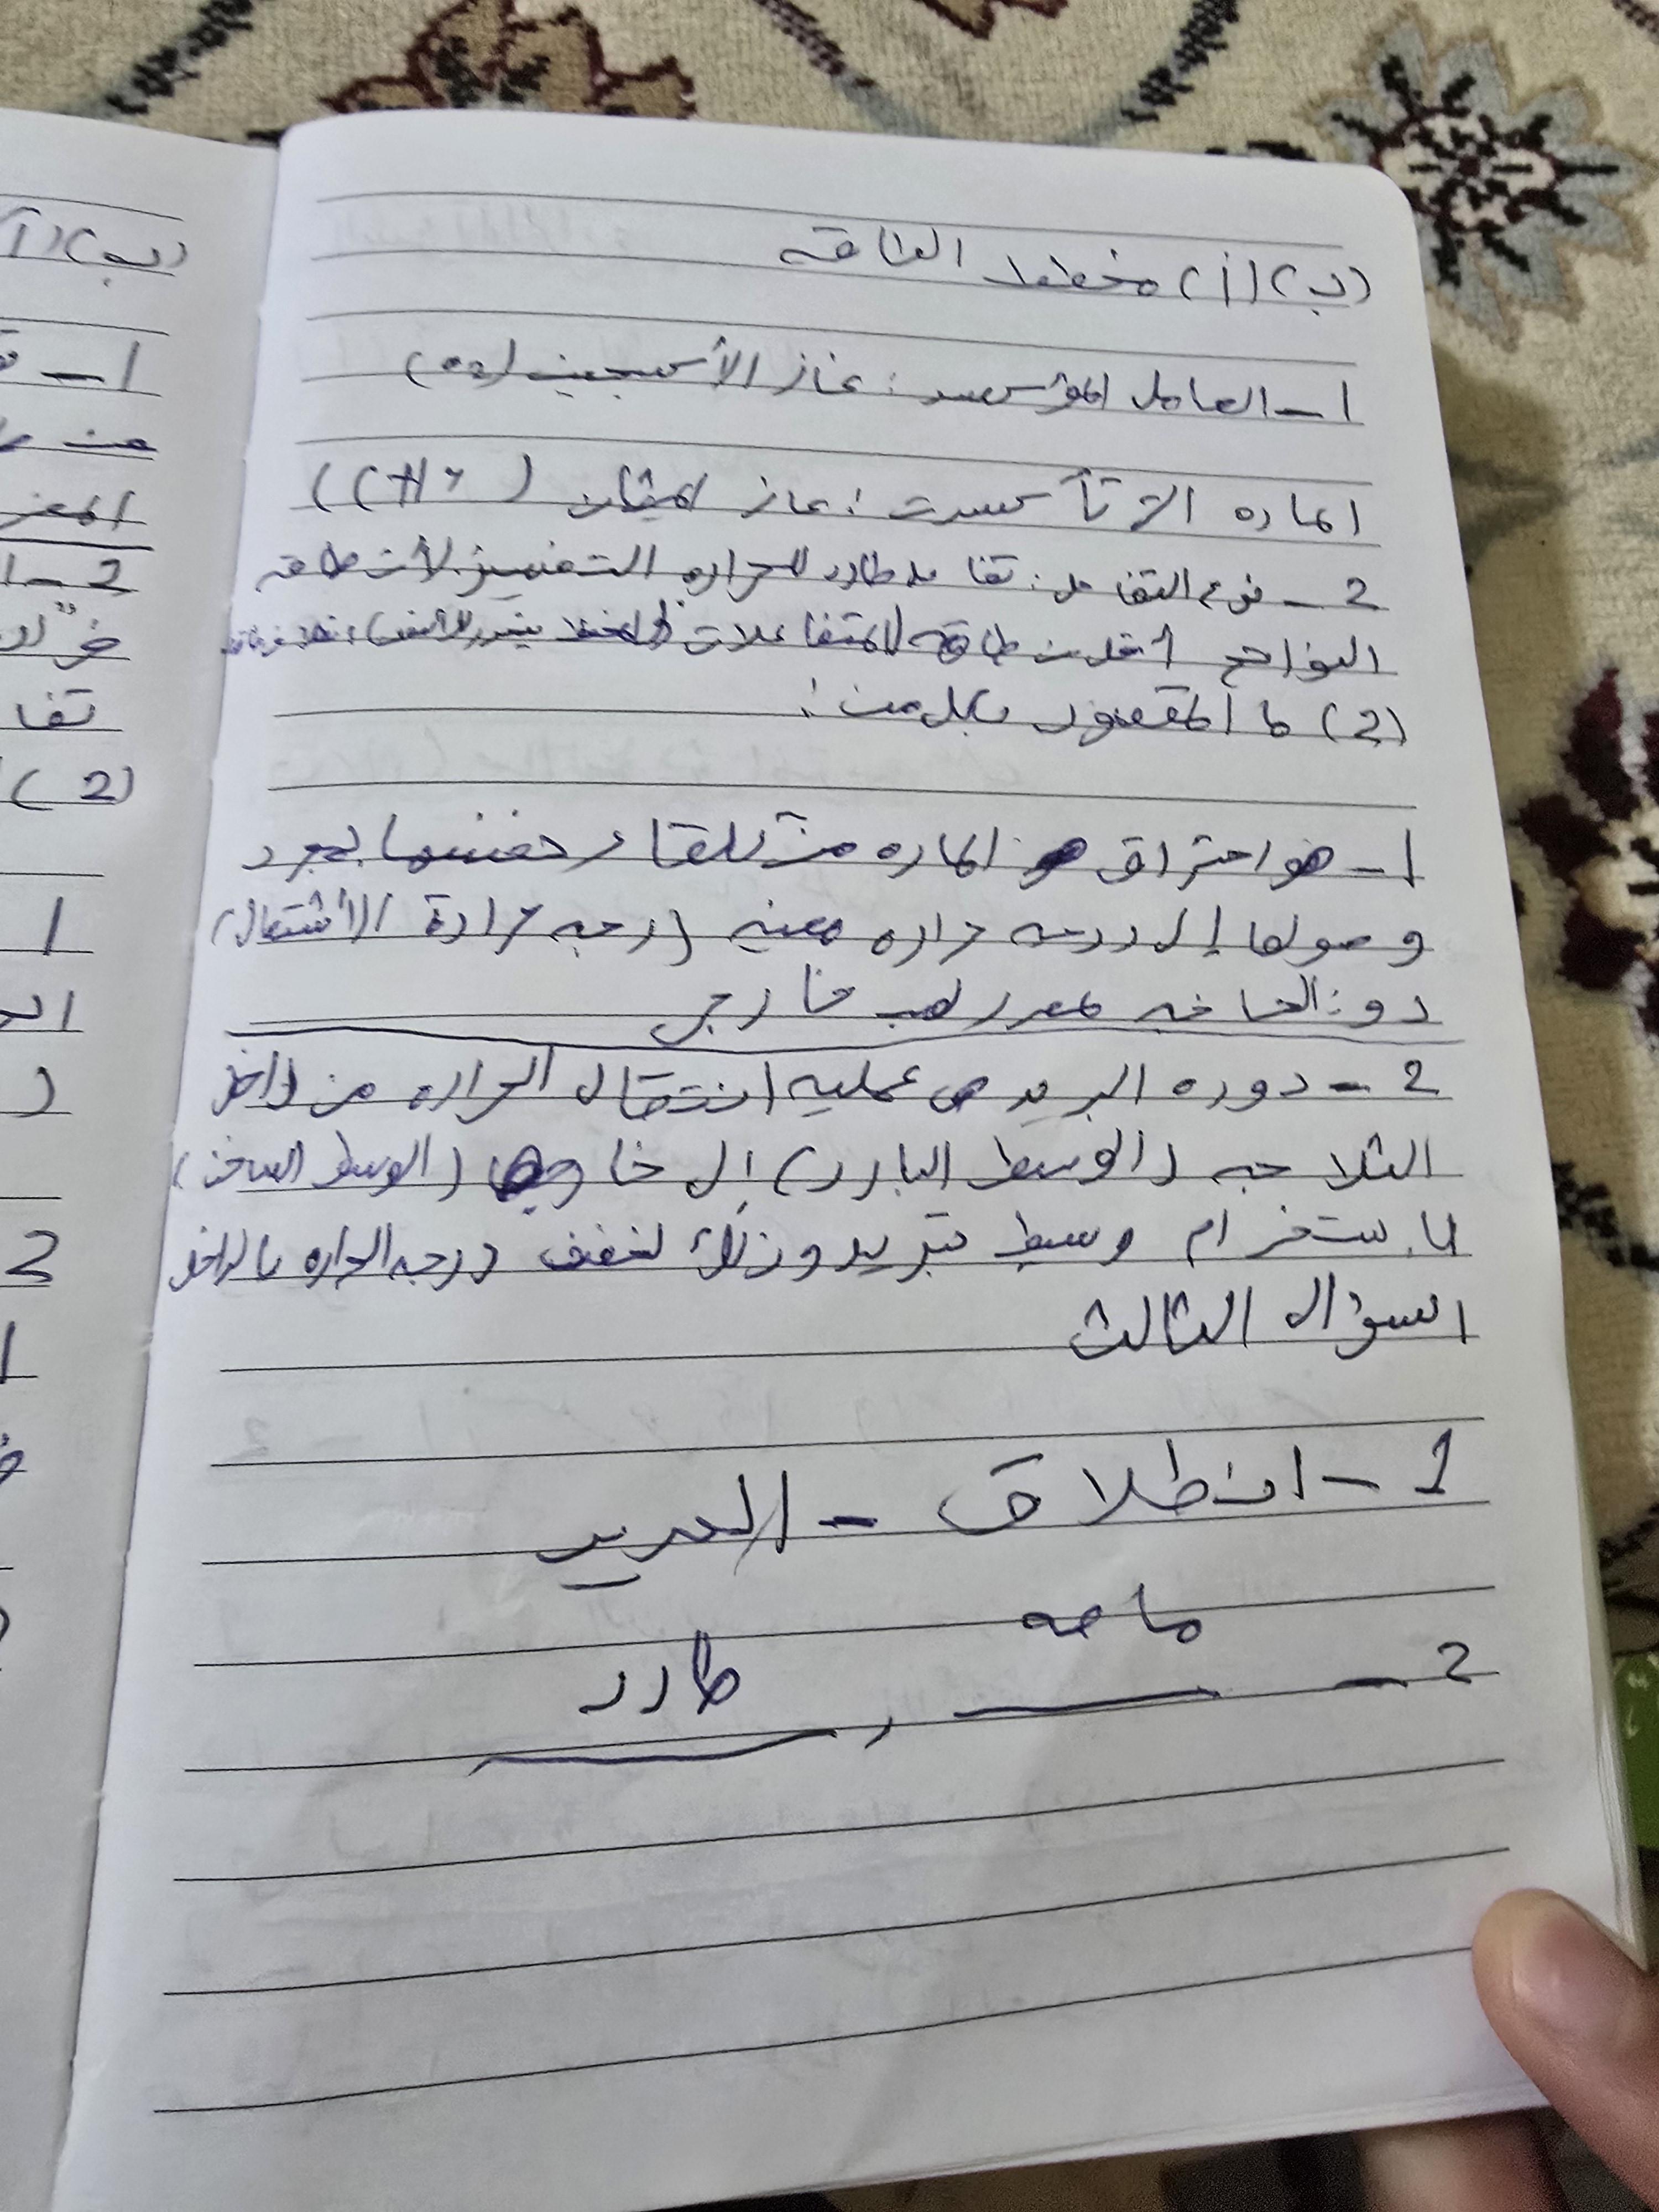 (ب) (أ) مخطط الطاقه
1 - العامل المؤكسد : غاز الأكسجين (O2)
الماده التي تأكسدت : غاز الميثان (CH4)
2 - نوع التفاعل : تفاعل طارد للحراره التفسير : لأن طاقه
النواتج أقل من طاقة المتفاعلات
(2) ما المقصود بكل من :
1 - هو احتراق الماده من تلقاء نفسها بمجرد
وصولها إلى درجه حراره معينه (درجه حرارة الأشتعال)
دون الحاجه لمصدر لهب خارجي
2 - دوره التبريد هي عمليه انتقال الحراره من داخل
الثلاجه (الوسط البارد) إلى خارجها (الوسط الساخن)
باستخدام وسيط تبريد وذلك لخفض درجه الحراره بالداخل
السؤال الثالث
1 - انطلاق - الحديد
2 - ماصه ، طارد
(ب) (أ
1 - 
من
2 - 
تفا
(2)
1
2